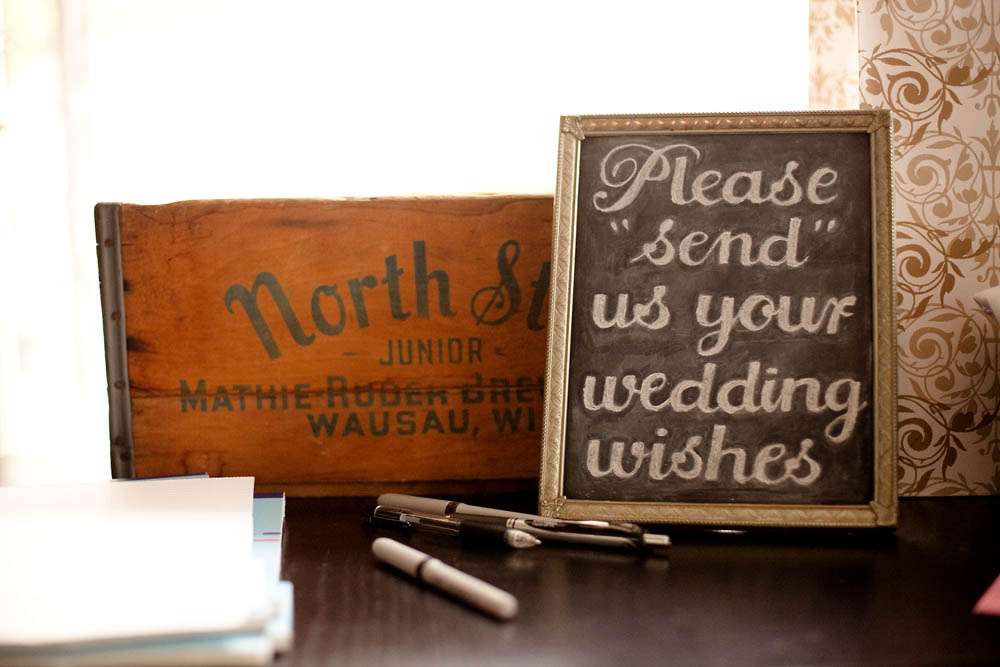 North
- JUNIOR -
MATHIE-RUDER
WAUSAU,
Please
"send"
us your
wedding
wishes